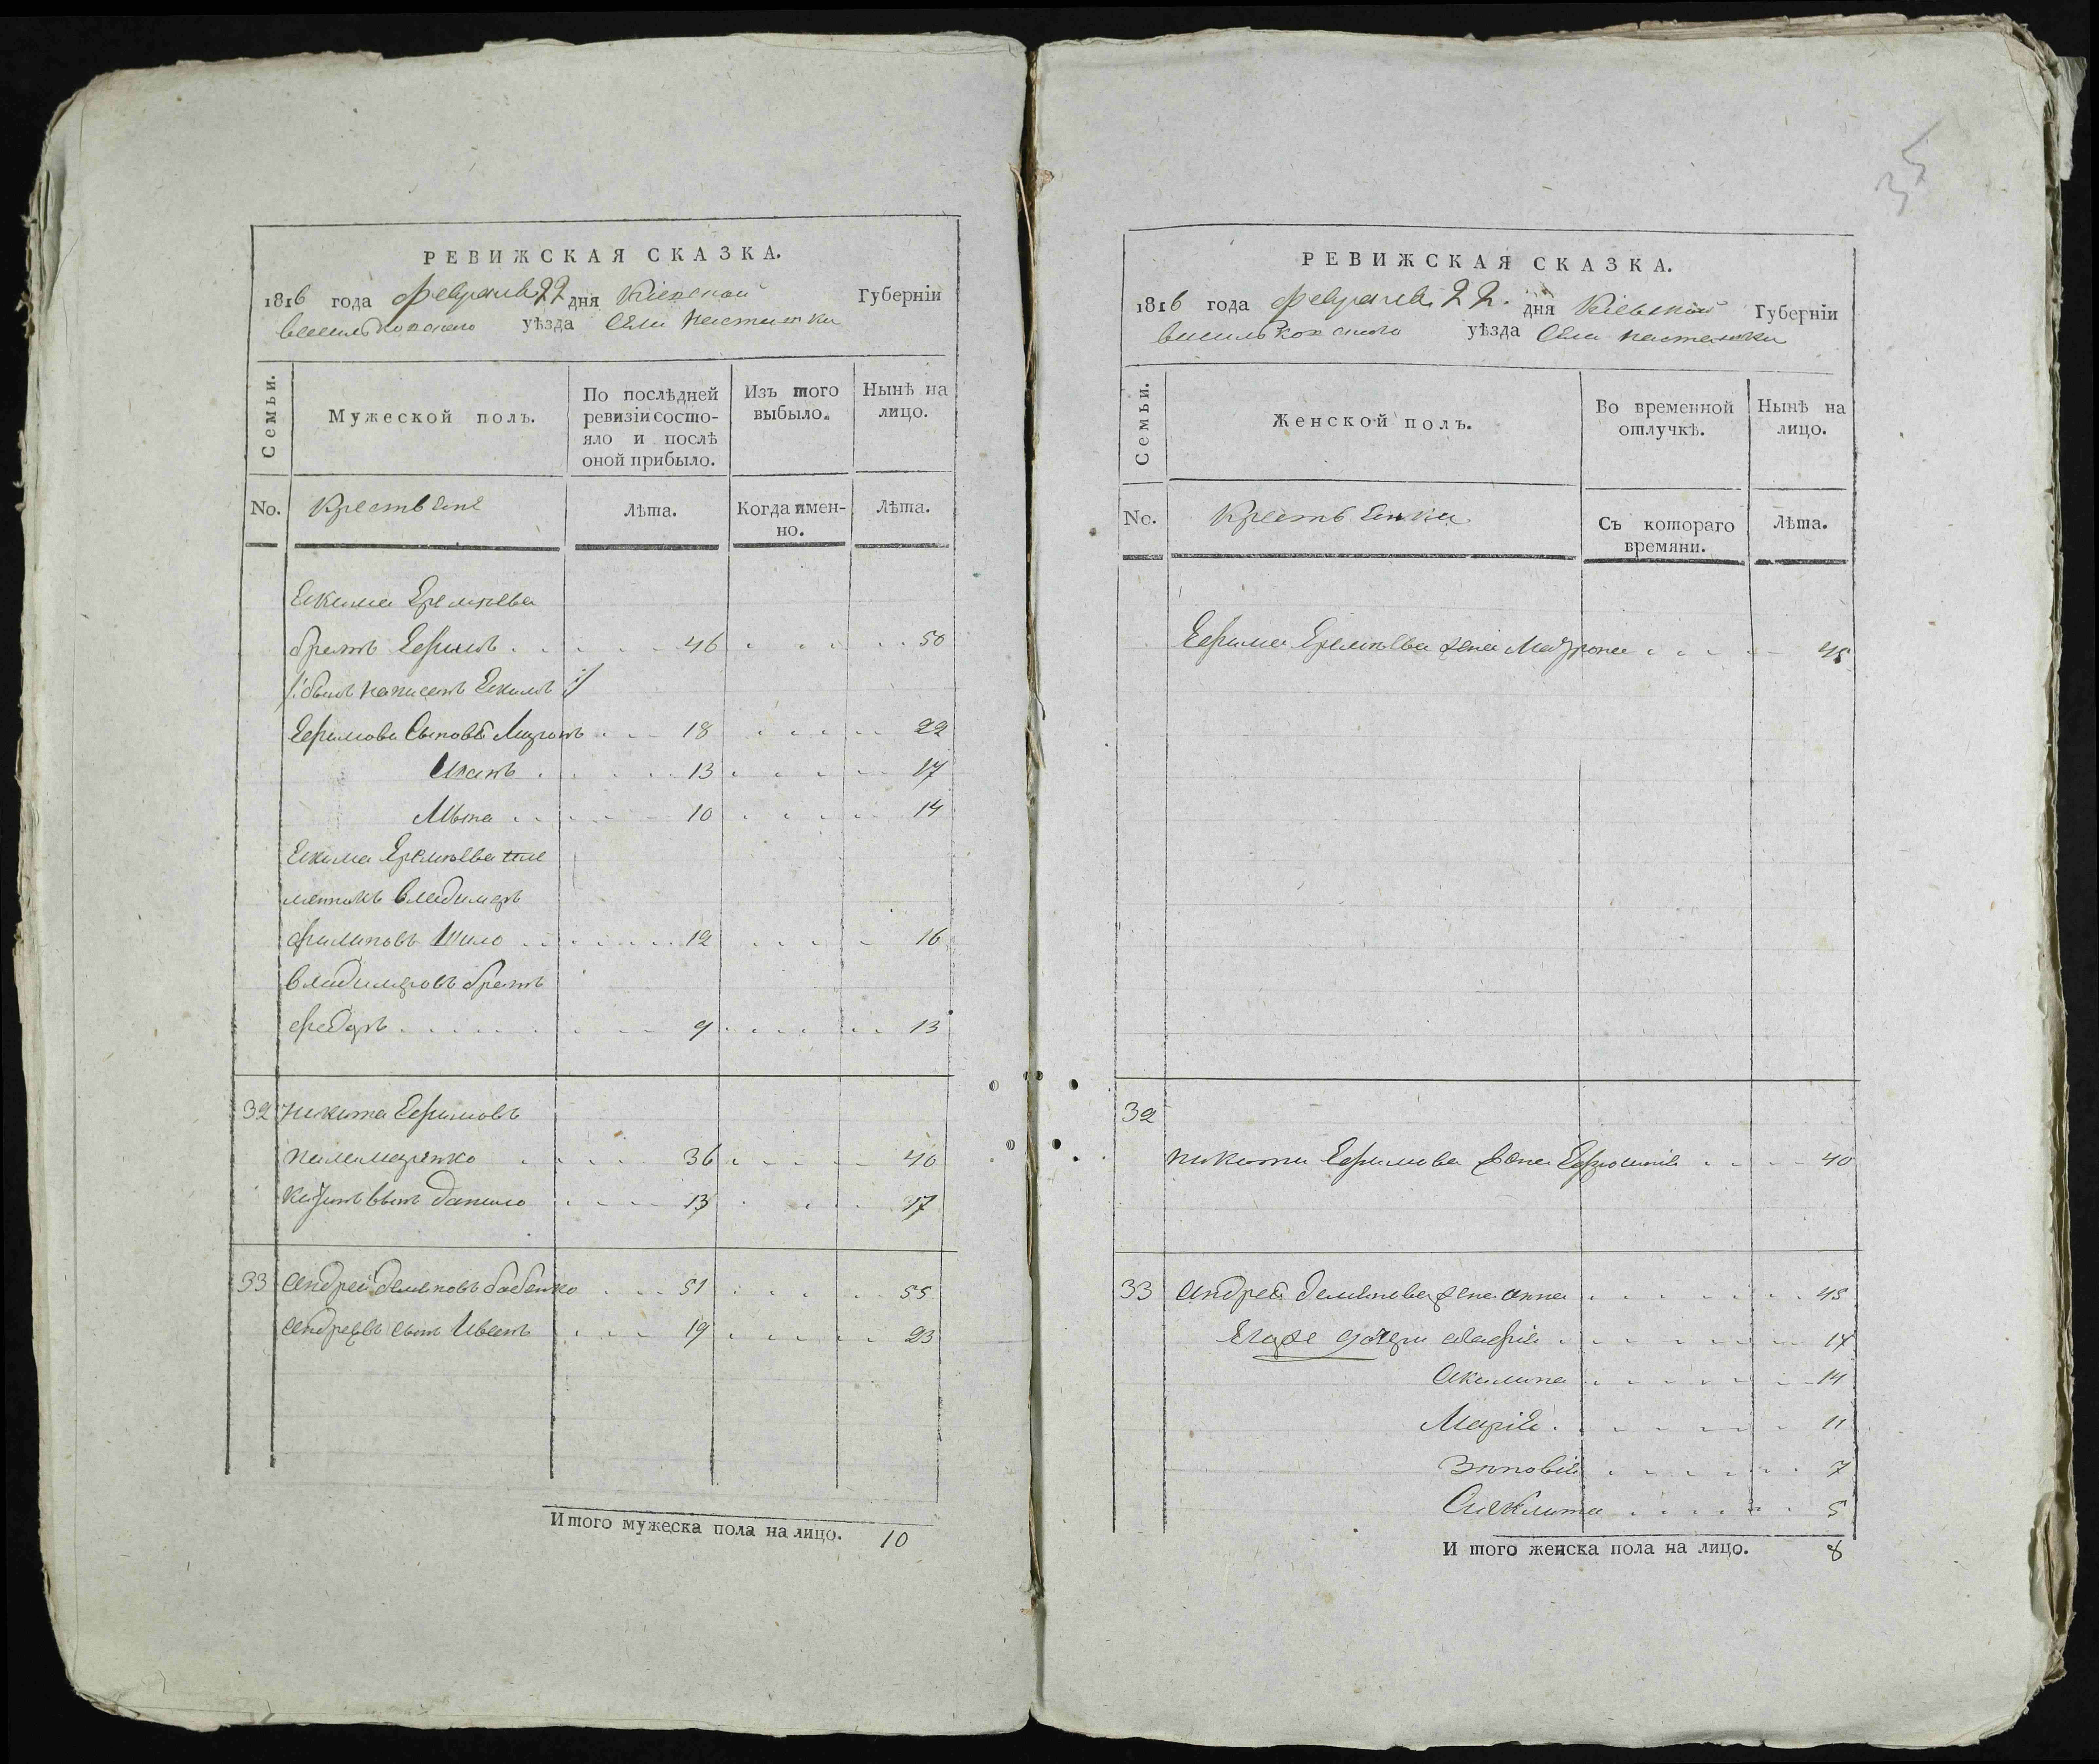 35
РЕВИЖСКАЯ СКАЗКА.
1816 года Февраля 22 дня Кіевской Губерніи
васильковскаго уѣзда Села
Семьи.
Мужеской полъ.
По послѣдней ревизіи состояло и послѣ оной прибыло.
Изъ того выбыло.
Нынѣ на лицо.
No.
Крестьяне
Лѣта.
Когда именно.
Лѣта.
Якима Еремѣева
братъ Ефимъ 46 50
былъ написанъ Якимъ
Ефимовы Сыновья Миронъ 18 22
Иванъ 13 17
10 14
Якима Еремѣева пле
мянникъ Владимеръ
Филиповъ Шило 12 16
Владимеровъ братъ
Федоръ 9 13
32 Никита Ефимовъ
Паламаренко 36 40
сынъ Данило 13 17
33 Андрей Демяновъ бабенко 51 55
Андреевъ сынъ Иванъ 19 23
Итого мужеска пола на лицо. 10
РЕВИЖСКАЯ СКАЗКА.
1816 года Февраля 22. дня Кіевской Губерніи
васильковскаго уѣзда Села
Семьи.
Женской полъ.
Во временной отлучкѣ.
Нынѣ на лицо.
No.
Крестьянки
Съ котораго времяни.
Лѣта.
Ефима Еремѣева жена Матрона 45
32
Никиты Ефимова жена Ефросинія 40
33 Андрея Демянова жена Анна 45
Егоже дочери 17
Акилина 14
Марія 11
Зиновія 7
5
Итого женска пола на лицо. 8